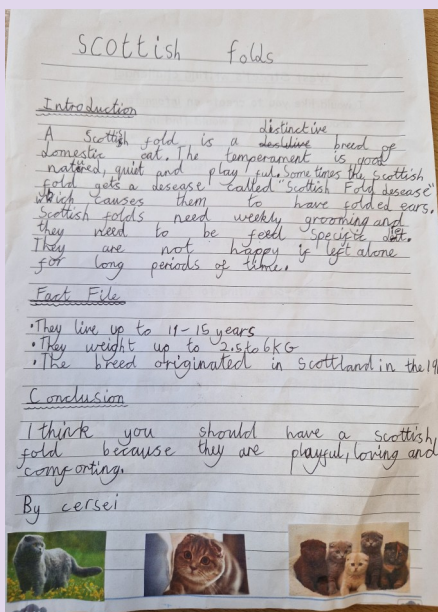 scottish folds
Introduction
distinctive
A Scottish fold is a breed of
domestic cat. The temperament is good
natured, quiet and play ful. Some times the scottish
fold gets a desease called "Scottish Fold desease"
which causes them to have folded ears.
Scottish folds need weekly grooming and
they need to be feed specific diet.
They are not happy if left alone
for long periods of time.
Fact File
• They live up to 11-15 years
• They weight up to 2.5 to 6KG
• The breed originated in scottland in the 19
Conclusion
I think you should have a scottish
fold because they are playful, loving and
comforting.
By cersei